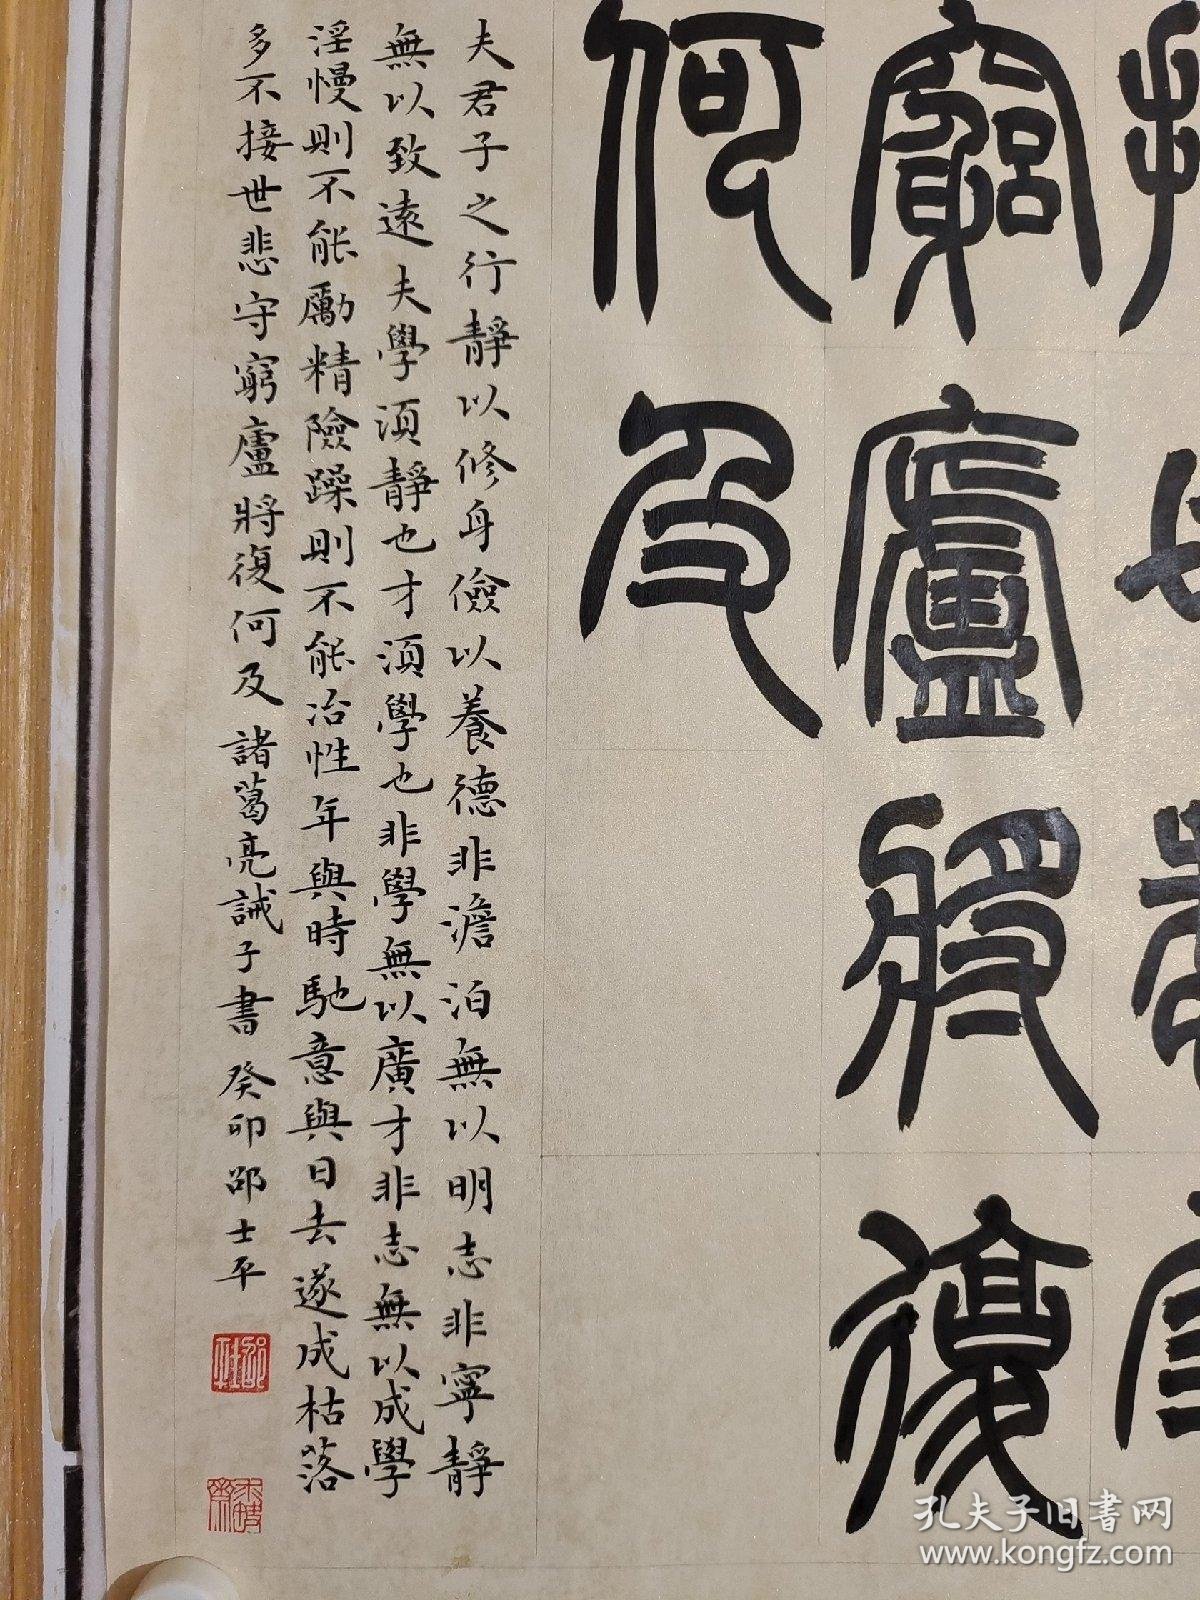 窮廬將復
何及
夫君子之行靜以修身儉以養德非澹泊無以明志非寧靜
無以致遠夫學湏靜也才湏學也非學無以廣才非志無以成學
淫慢則不能勵精險躁則不能冶性年與時馳意與日去遂成枯落
多不接世悲守窮廬將復何及 諸葛亮誡子書 癸卯邵士平
孔夫子旧书网
www.kongfz.com